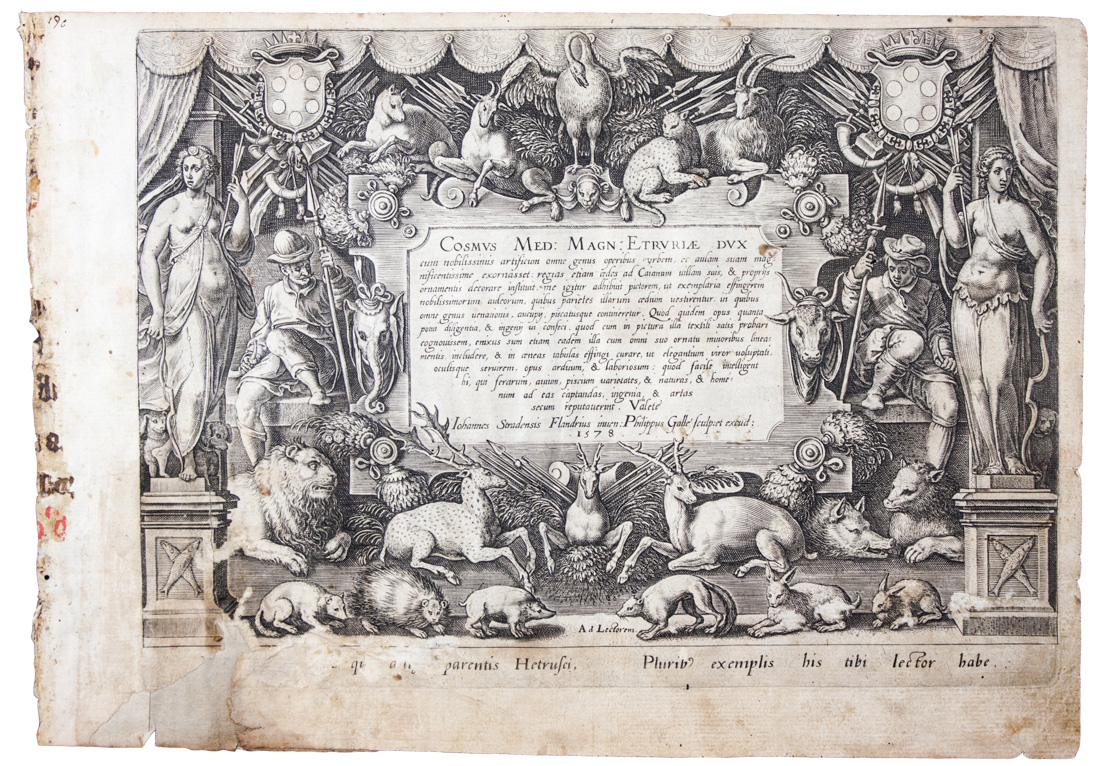 COSMVS MED: MAGN: ETRVRIÆ DVX
cum nobilissimis artificum omne genus operibus vrbem, ac aulam suam mag
nificentissime exornasset: regias etiam ædes ad Caianum uillam suis, & propriis
ornamentis decorare instituit. me igitur adhibuit pictorem, ut exemplaria effingerem
nobilissimorum aulæorum, quibus parietes illarum ædium uestirentur, in quibus
omne genus uenationis, aucupy, piscatusque contineretur. Quod quidem opus quanta
potui diligentia, & ingenij ui confeci. quod cum in pictura illa textili satis probari
cognouissem, enixus sum etiam eadem illa cum omni suo ornatu minoribus linea-
mentis includere, & in æneas tabulas effingi curare, ut elegantium viror' voluptati,
oculisque seruirem. opus arduum, & laboriosum: quod facile intelligent
hi, qui ferarum, auium, piscium uarietates, & naturas, & homi-
num ad eas captandas, ingenia, & artes
secum reputauerint. Valete
Iohannes Stradensis Flandrius inuen: Philippus Galle' sculpset excud:
1578
Ad Lectorem
parentis Hetrusci, Plurib9 exemplis his tibi lector habe